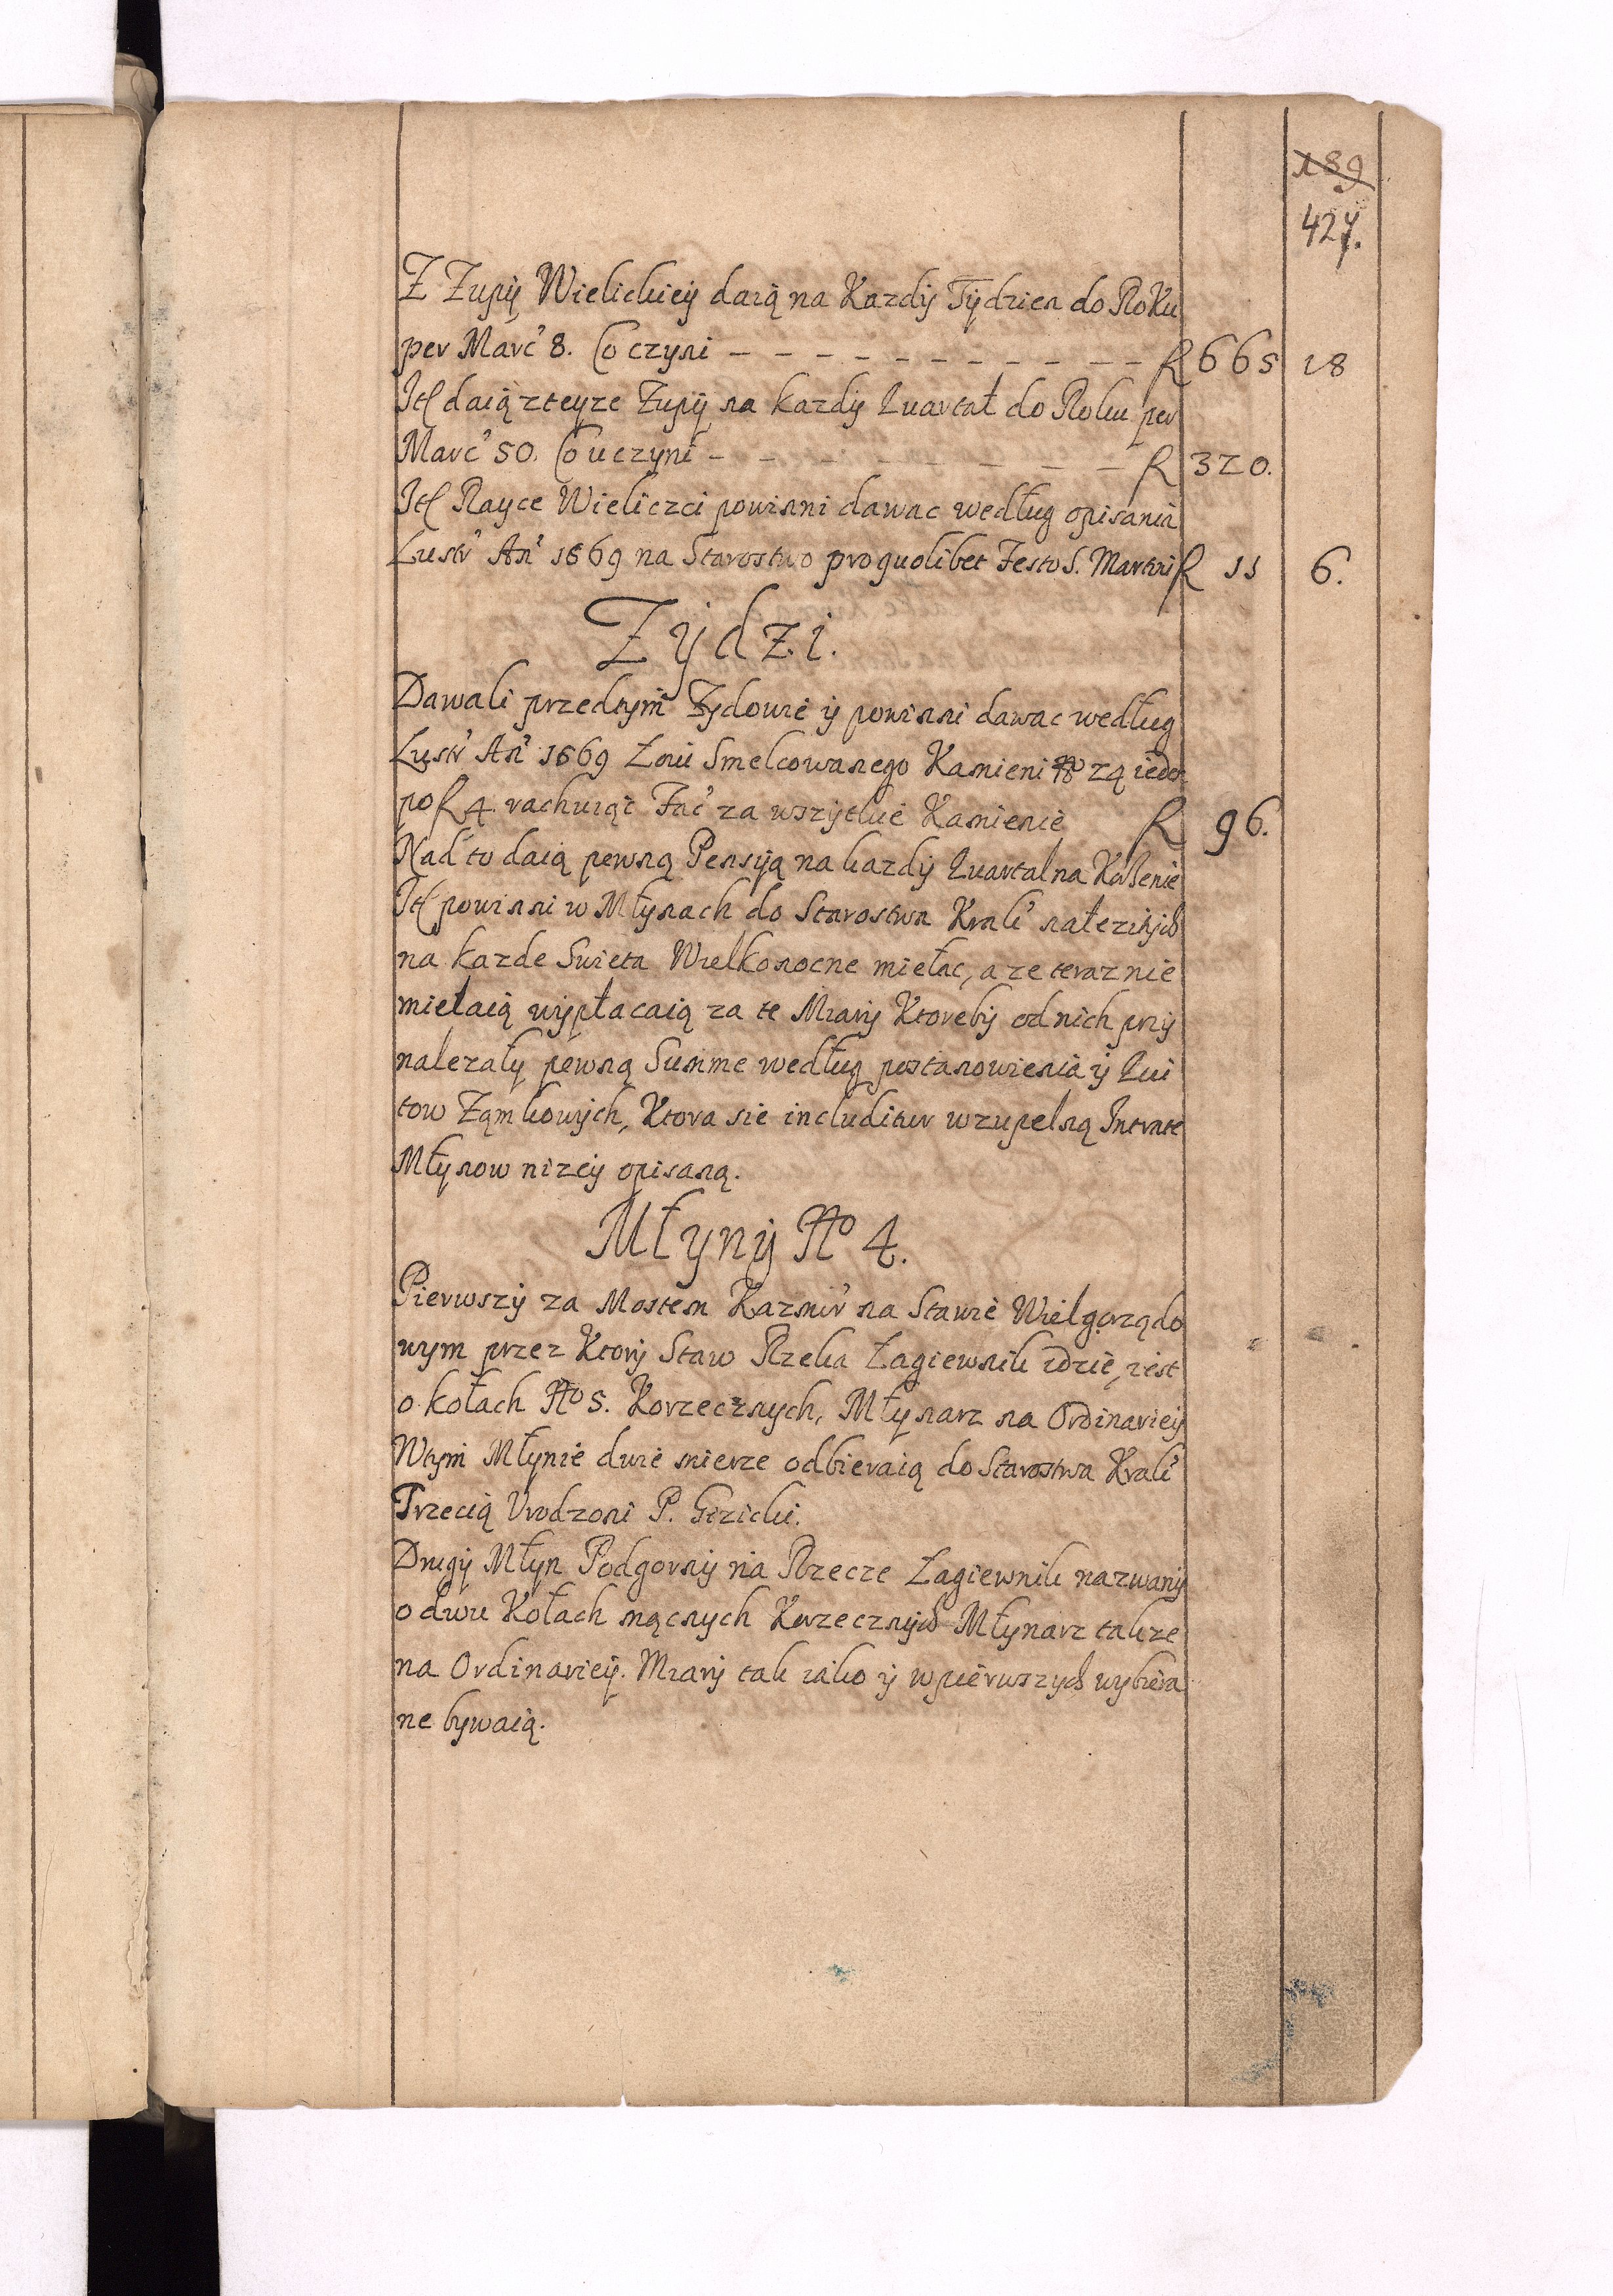 189
427.
Z Zupÿ Wielickieÿ daią na Kazdÿ Tÿdzien do Roku
per Marc' 8. Co czyni – – – – – – – – – – – f 665 18
Itl daią zteyze Zupÿ na kazdÿ Quartał do Roku per
Marc' 50. Co uczyni – – – – – – – – f 320.
Itl Rayce Wieliczci powinni dawac według opisania
Lustr' An' 1569 na Starostwo pro quolibet Festo S. Martini f 11 6.
Zÿdzi.
Dawali przedtym Zydowie ÿ powinni dawac według
Lustr' An' 1569 Łoiu Smelcowanego Kamieni za ieden
po f 4. rachuiąc Fac' za wszÿtkie Kamienie f 96.
Nad to daią pewną Pensyą na kazdÿ Quartal na
Itl powinni w Młynach do Starostwa Krak' nalezących
na kazde Swieta Wielkonocne miełac, a ze teraz nie
mielaią wÿpłacaią za te Miarÿ Ktorebÿ od nich przÿ
nalezałÿ pewną Summe według postanowienia ÿ Qui
tow Zamkowÿch, Ktora sie includitur w zupelną Intrate
Młynow nizeÿ opisaną.
Młynÿ No 4.
Pierwszÿ za Mostem Kazmir' na Stawie Wielgorządo
wym przez Ktorÿ Staw Rzeka Łagiewnik idzie, iest
o kołach No 5. Korzecznych, Młynarz na Ordinarieÿ
Wtym Młynie dwie mierze odbieraią do Starostwa Krak'
Trzecią Urodzoni P. Gizicki.
Drugÿ Młyn Podgornÿ na Rzecze Łagiewnik nazwanÿ
o dwu Kołach mącnych Korzecznÿch Młynarz takze
na Ordinarieÿ. Miarÿ tak iako ÿ w pierwszych wybiera
ne bywaią.